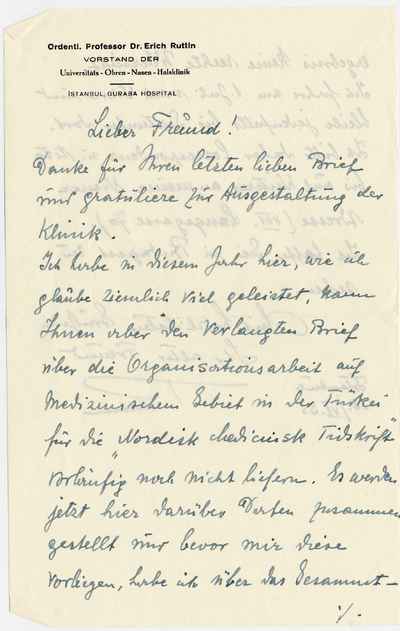 Ordentl. Professor Dr. Erich Ruttin
VORSTAND DER
Universitäts - Ohren - Nasen - Halsklinik
İSTANBUL, GURABA HOSPITAL
Lieber Freund!
Danke für Ihren letzten lieben Brief
und gratuliere zur Ausgestaltung der
Klinik.
Ich habe in diesem Jahr hier, wie ich
glaube ziemlich viel geleistet, kann
Ihnen aber den verlangten Brief
über die Organisationsarbeit auf
medizinischem Gebiet in der Türkei
für die „Nordisk Medicinsk Tidskrift"
vorläufig noch nicht liefern. Es werden
jetzt hier darüber Daten zusammen
gestellt und bevor mir diese
vorliegen, habe ich über das Gesamt-
./.